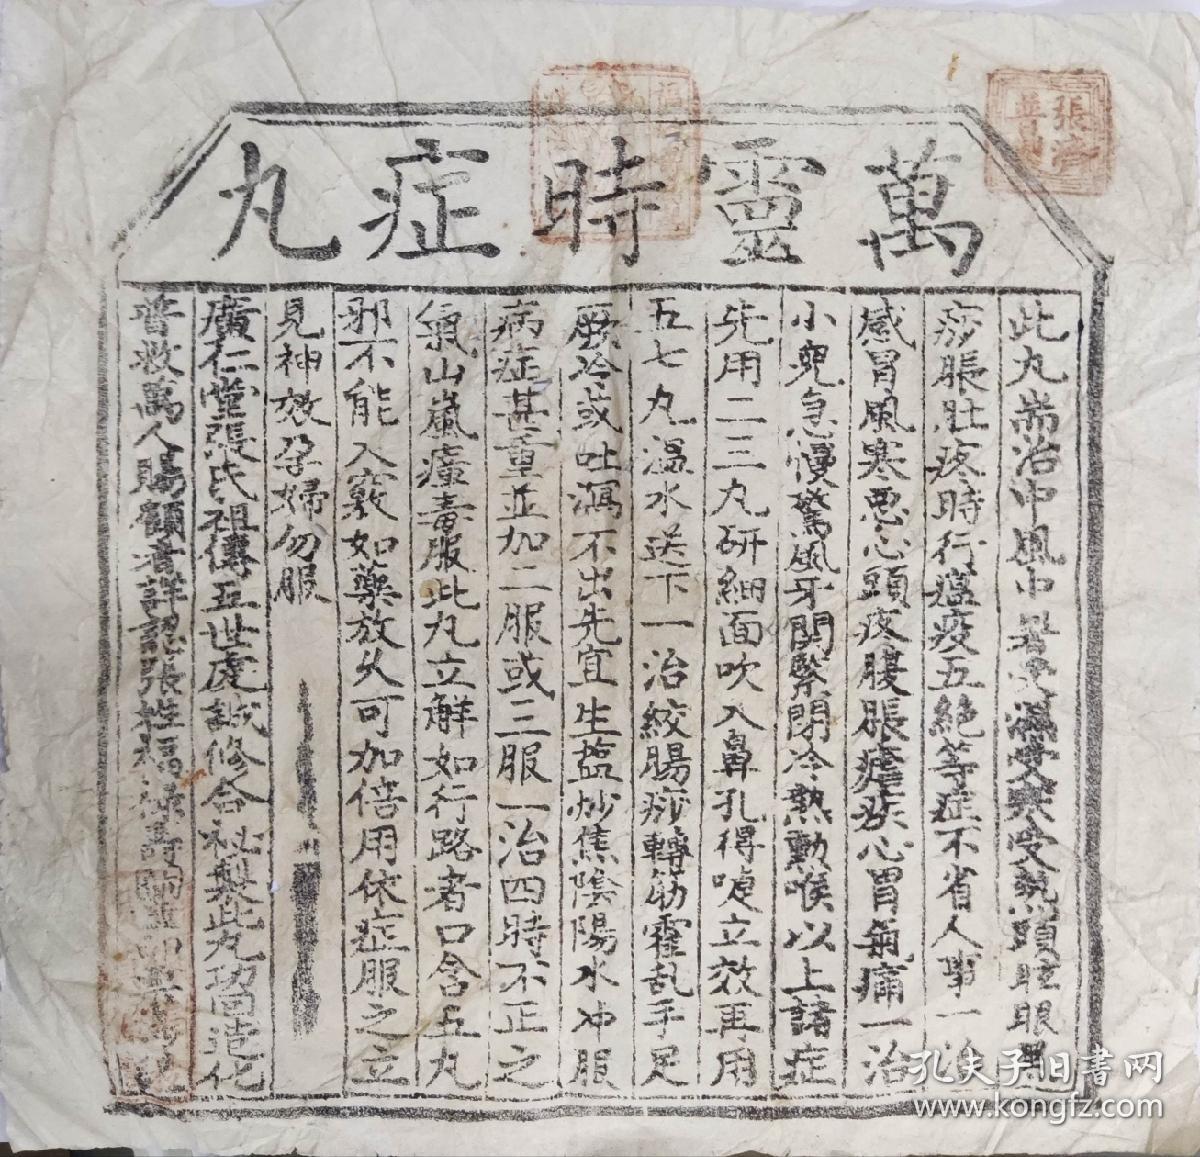 萬靈時症丸
此丸耑治中風中暑受寒受熱頭眩眼黑
痧脹肚疼時行瘟疫五絕等症不省人事一治
感冒風寒惡心頭疼腹脹瘧疾心胃氣痛一治
小兒急慢驚風牙關緊閉冷熱動喉以上諸症
先用二三丸研細面吹入鼻孔得嚏立效再用
五七丸溫水送下一治絞腸痧轉筋霍乱手足
厥冷或吐瀉不出先宜生鹽炒焦陰陽水冲服
病症甚重並加二服或三服一治四時不正之
氣山嵐瘴毒服此丸立解如行路者口含五丸
邪不能入竅如藥放久可加倍用依症服之立
見神效孕婦勿服
廣仁堂張氏祖傳五世虔誠修合秘製此丸功同造化
普救萬人賜顧者詳認張姓福祿壽
孔夫子旧书网
www.kongfz.com